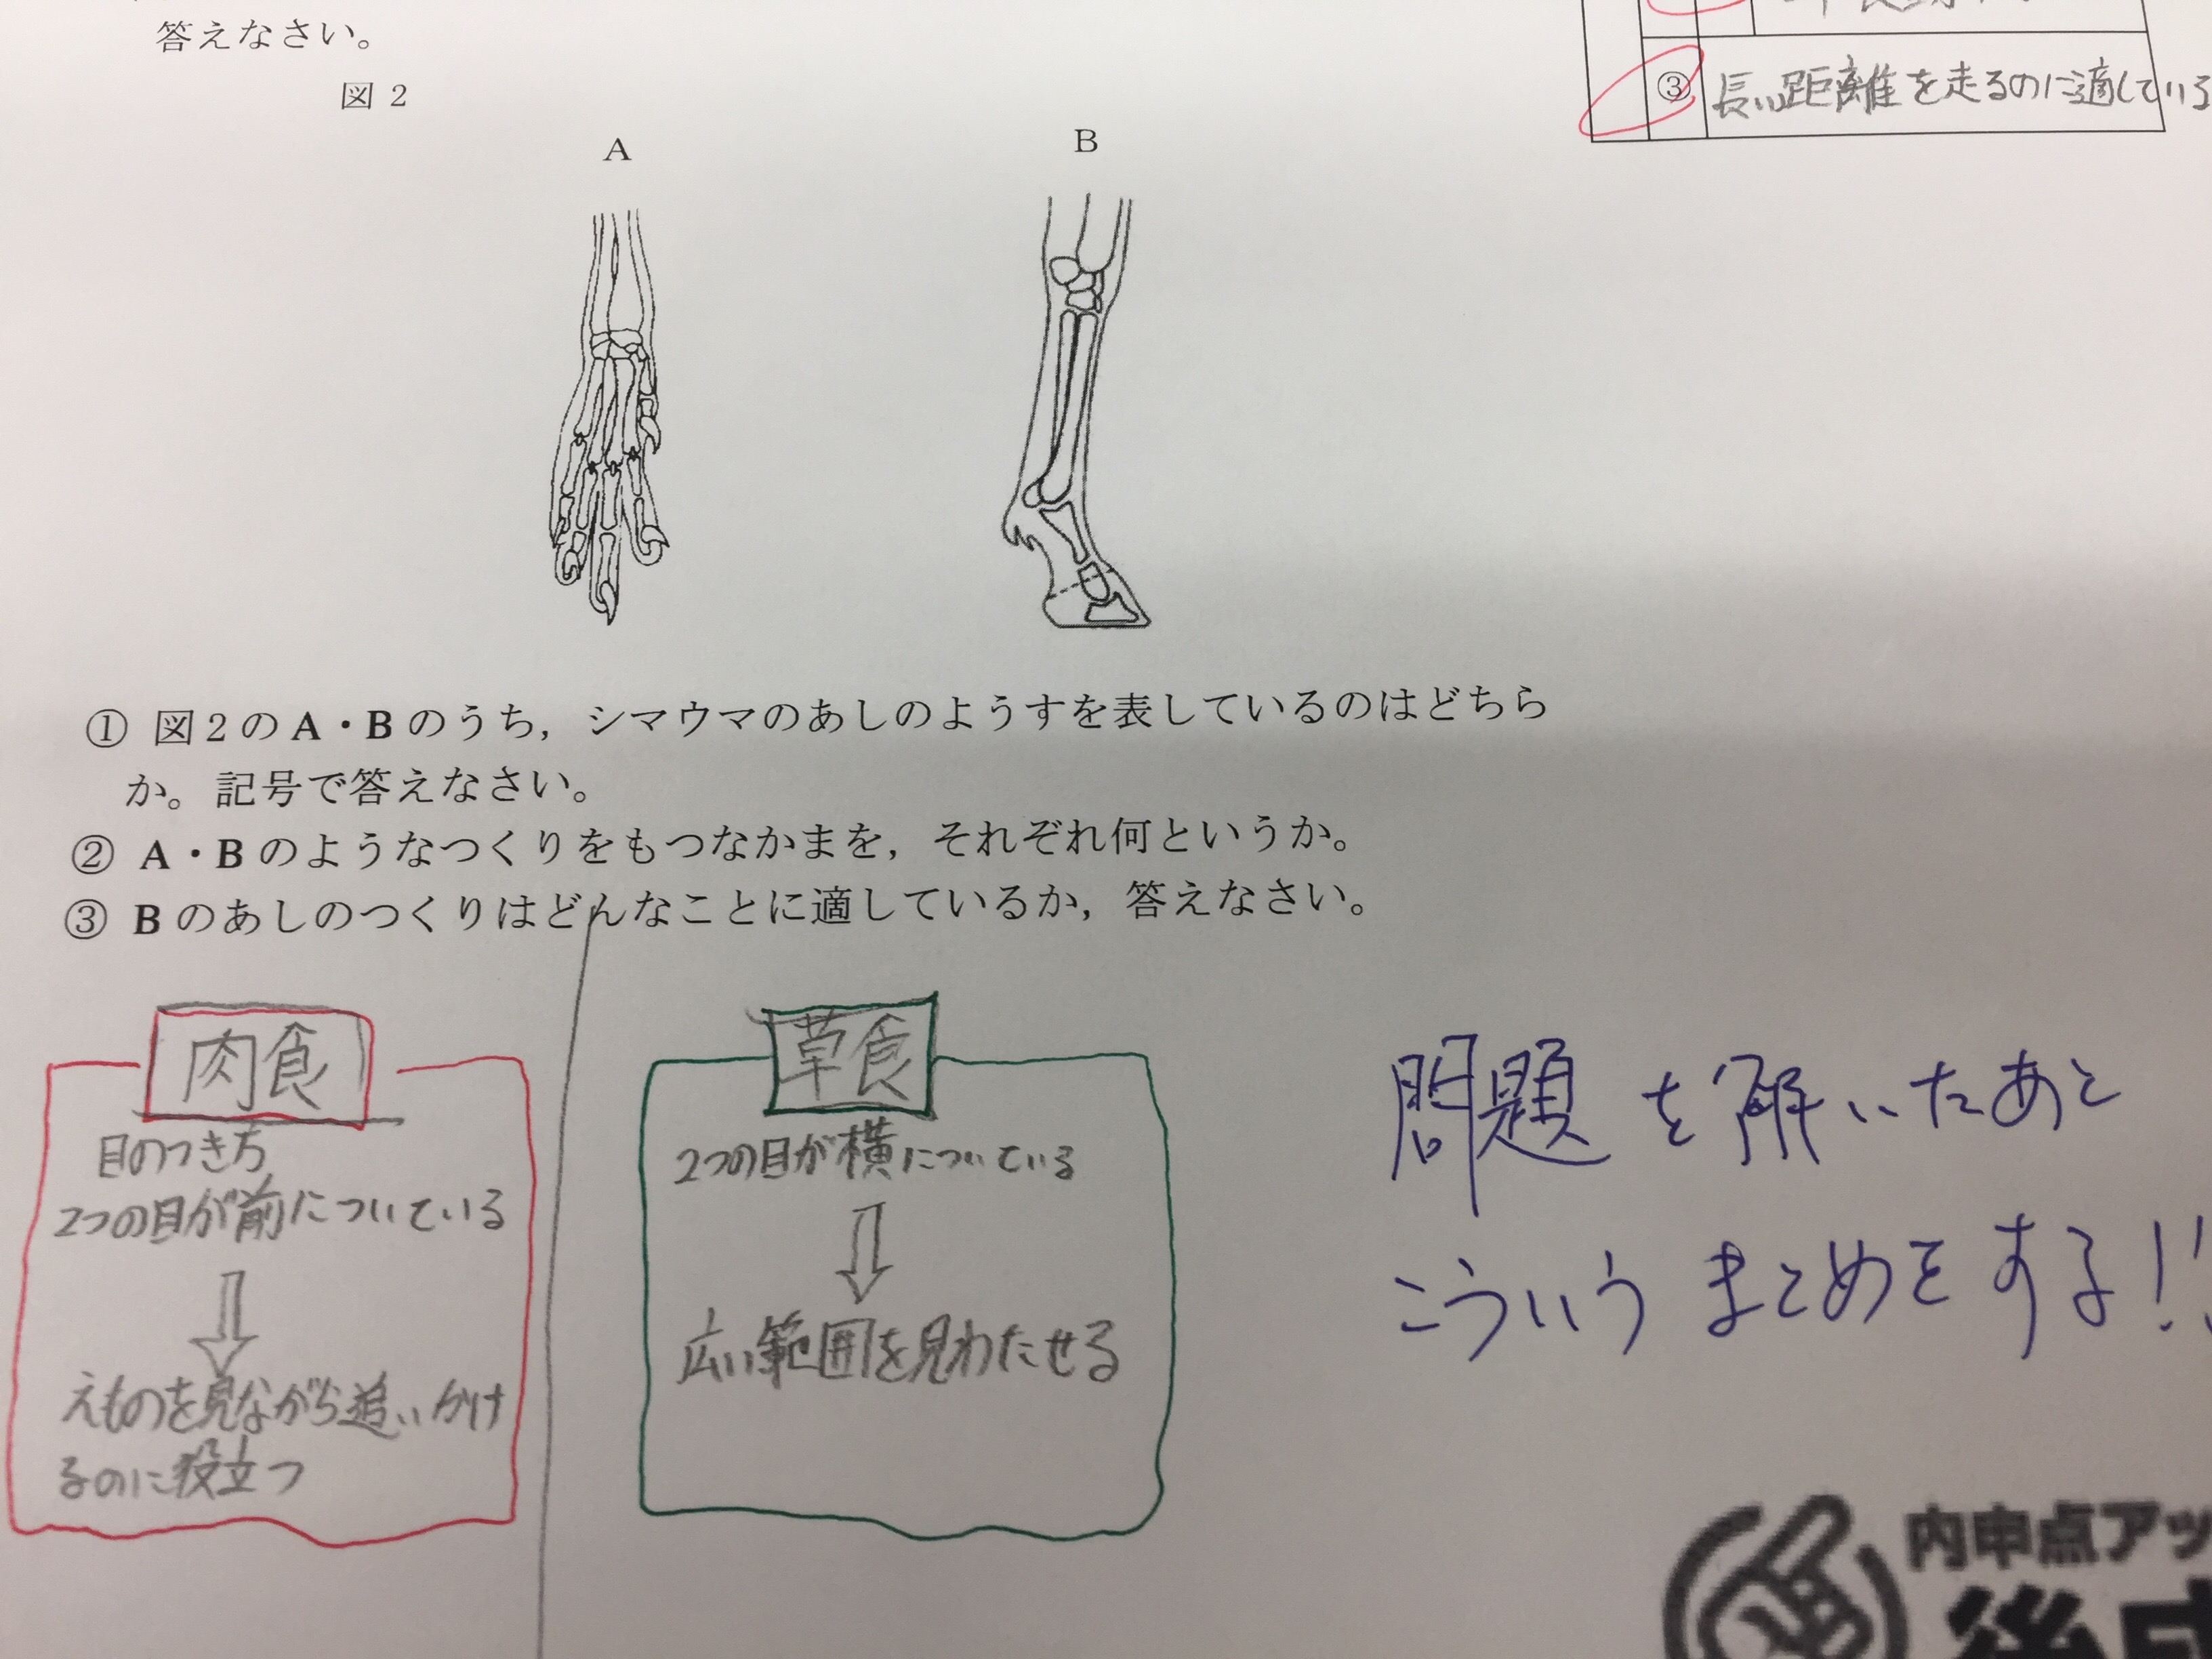 答えなさい。
③ 長い距離を走るのに適している
図 2
A
B
① 図2のA・Bのうち，シマウマのあしのようすを表しているのはどちら
か。記号で答えなさい。
② A・Bのようなつくりをもつなかまを，それぞれ何というか。
③ Bのあしのつくりはどんなことに適しているか，答えなさい。
肉食
目のつき方
2つの目が前についている
えものを見ながら追いかけ
るのに役立つ
草食
2つの目が横についている
広い範囲を見わたせる
問題を解いたあと
こういうまとめをする!!
内申点アッ